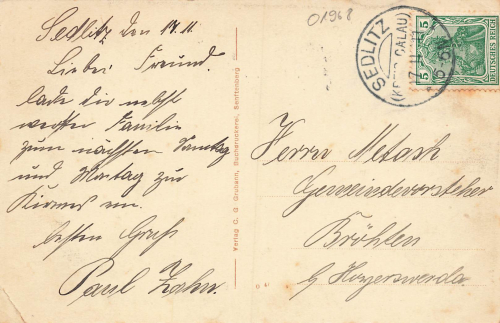 Sedlitz den 17.11.
Lieber Freund.
lade dir nebst
werter Familie
zum nächsten Sonntag
und Montag zur
Kirmes ein.
besten Gruß
Paul Zahn.
Verlag C. G. Grubann, Buchdruckerei, Senftenberg
01968
SEDLITZ
(KREIS CALAU)
17. 11.
5
5
DEUTSCHES REICH
Herrn Metask
Gemeindevorsteher
Bröhten
b/ Hoyerswerda.